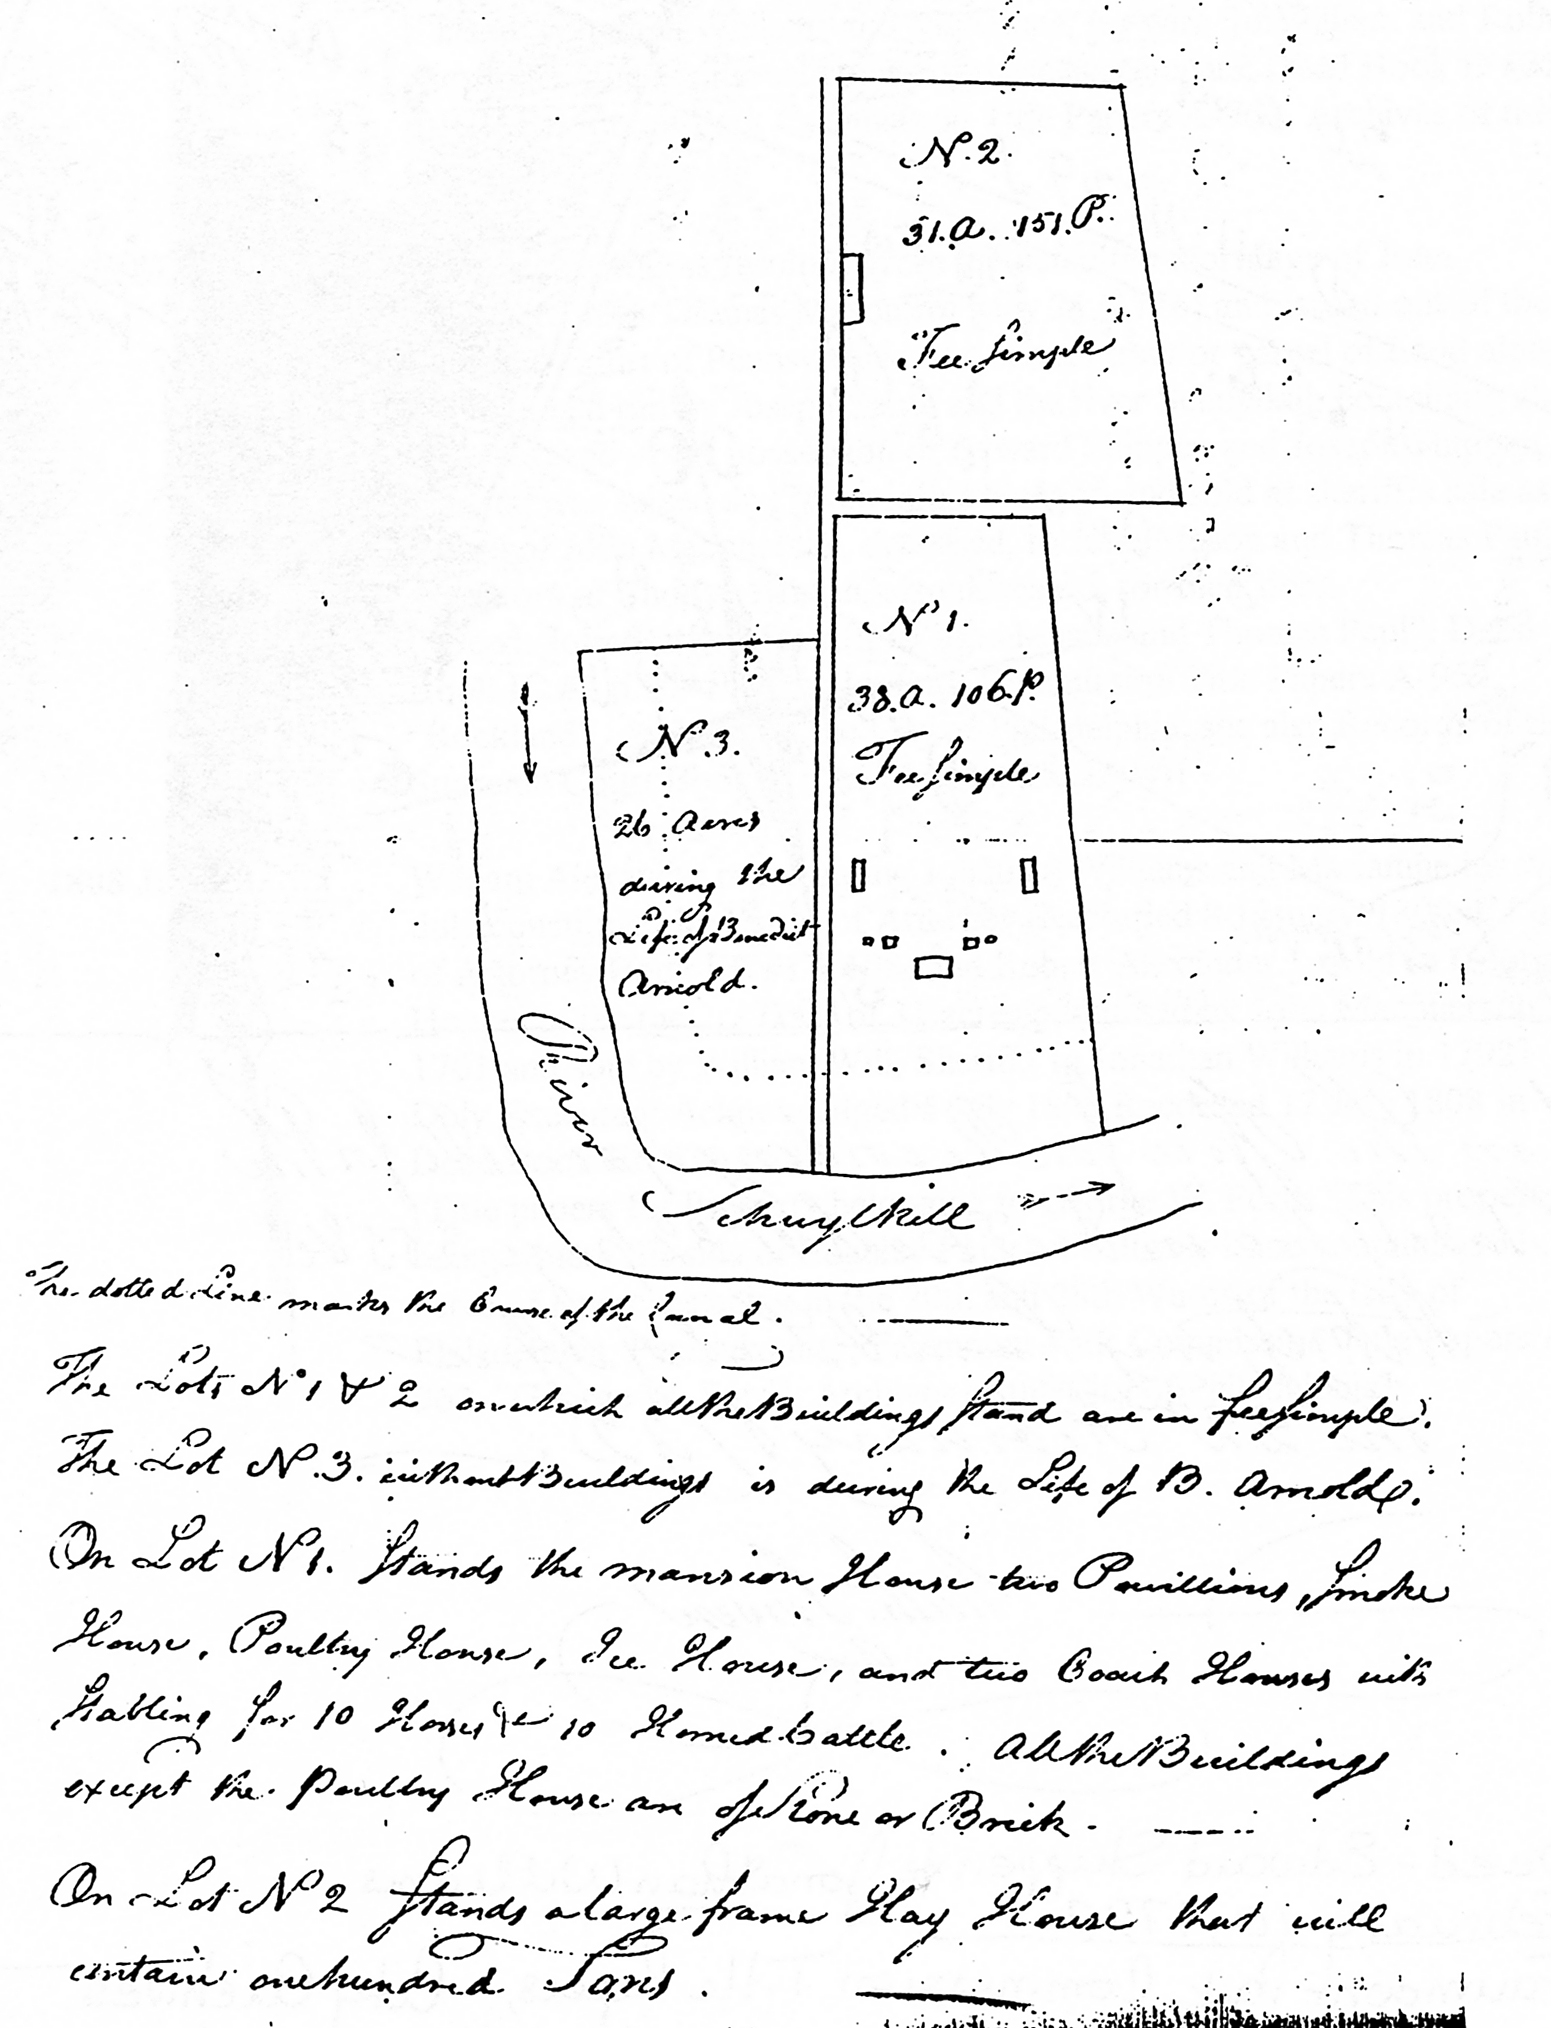 N. 2.
31. A. 151. P.
Fee Simple
N° 1.
38. A. 106. P.
Fee Simple
N. 3.
26 Acres
during the
Life of Benedict
Arnold.
River
Schuylkill
The dotted Line marks the Course of the Canal.
The Lots N° 1 & 2 on which all the Buildings Stand are in fee Simple.
The Lot N. 3. without Buildings is during the Life of B. Arnold.
On Lot N 1. Stands the mansion House two Pavillions, Smoke
House, Poultry House, Ice House, and two Coach Houses with
Stabling for 10 Horses & 10 Horned Cattle. All the Buildings
except the Poultry House are of Stone or Brick.
On Lot N 2 Stands a large frame Hay House that will
contain one hundred Tons.